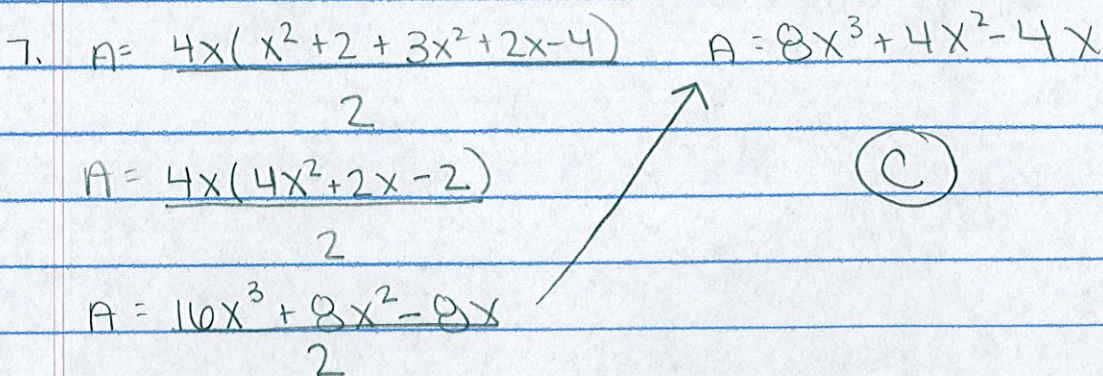 7. A = 4x(x² + 2 + 3x² + 2x - 4)
2
A = 4x(4x² + 2x - 2)
2
A = 16x³ + 8x² - 8x
2
A = 8x³ + 4x² - 4x
C